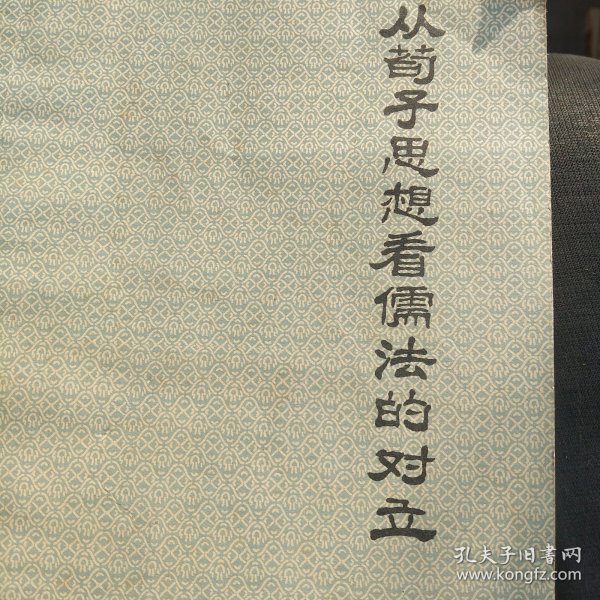 从荀子思想看儒法的对立
孔夫子旧书网
www.kongfz.com